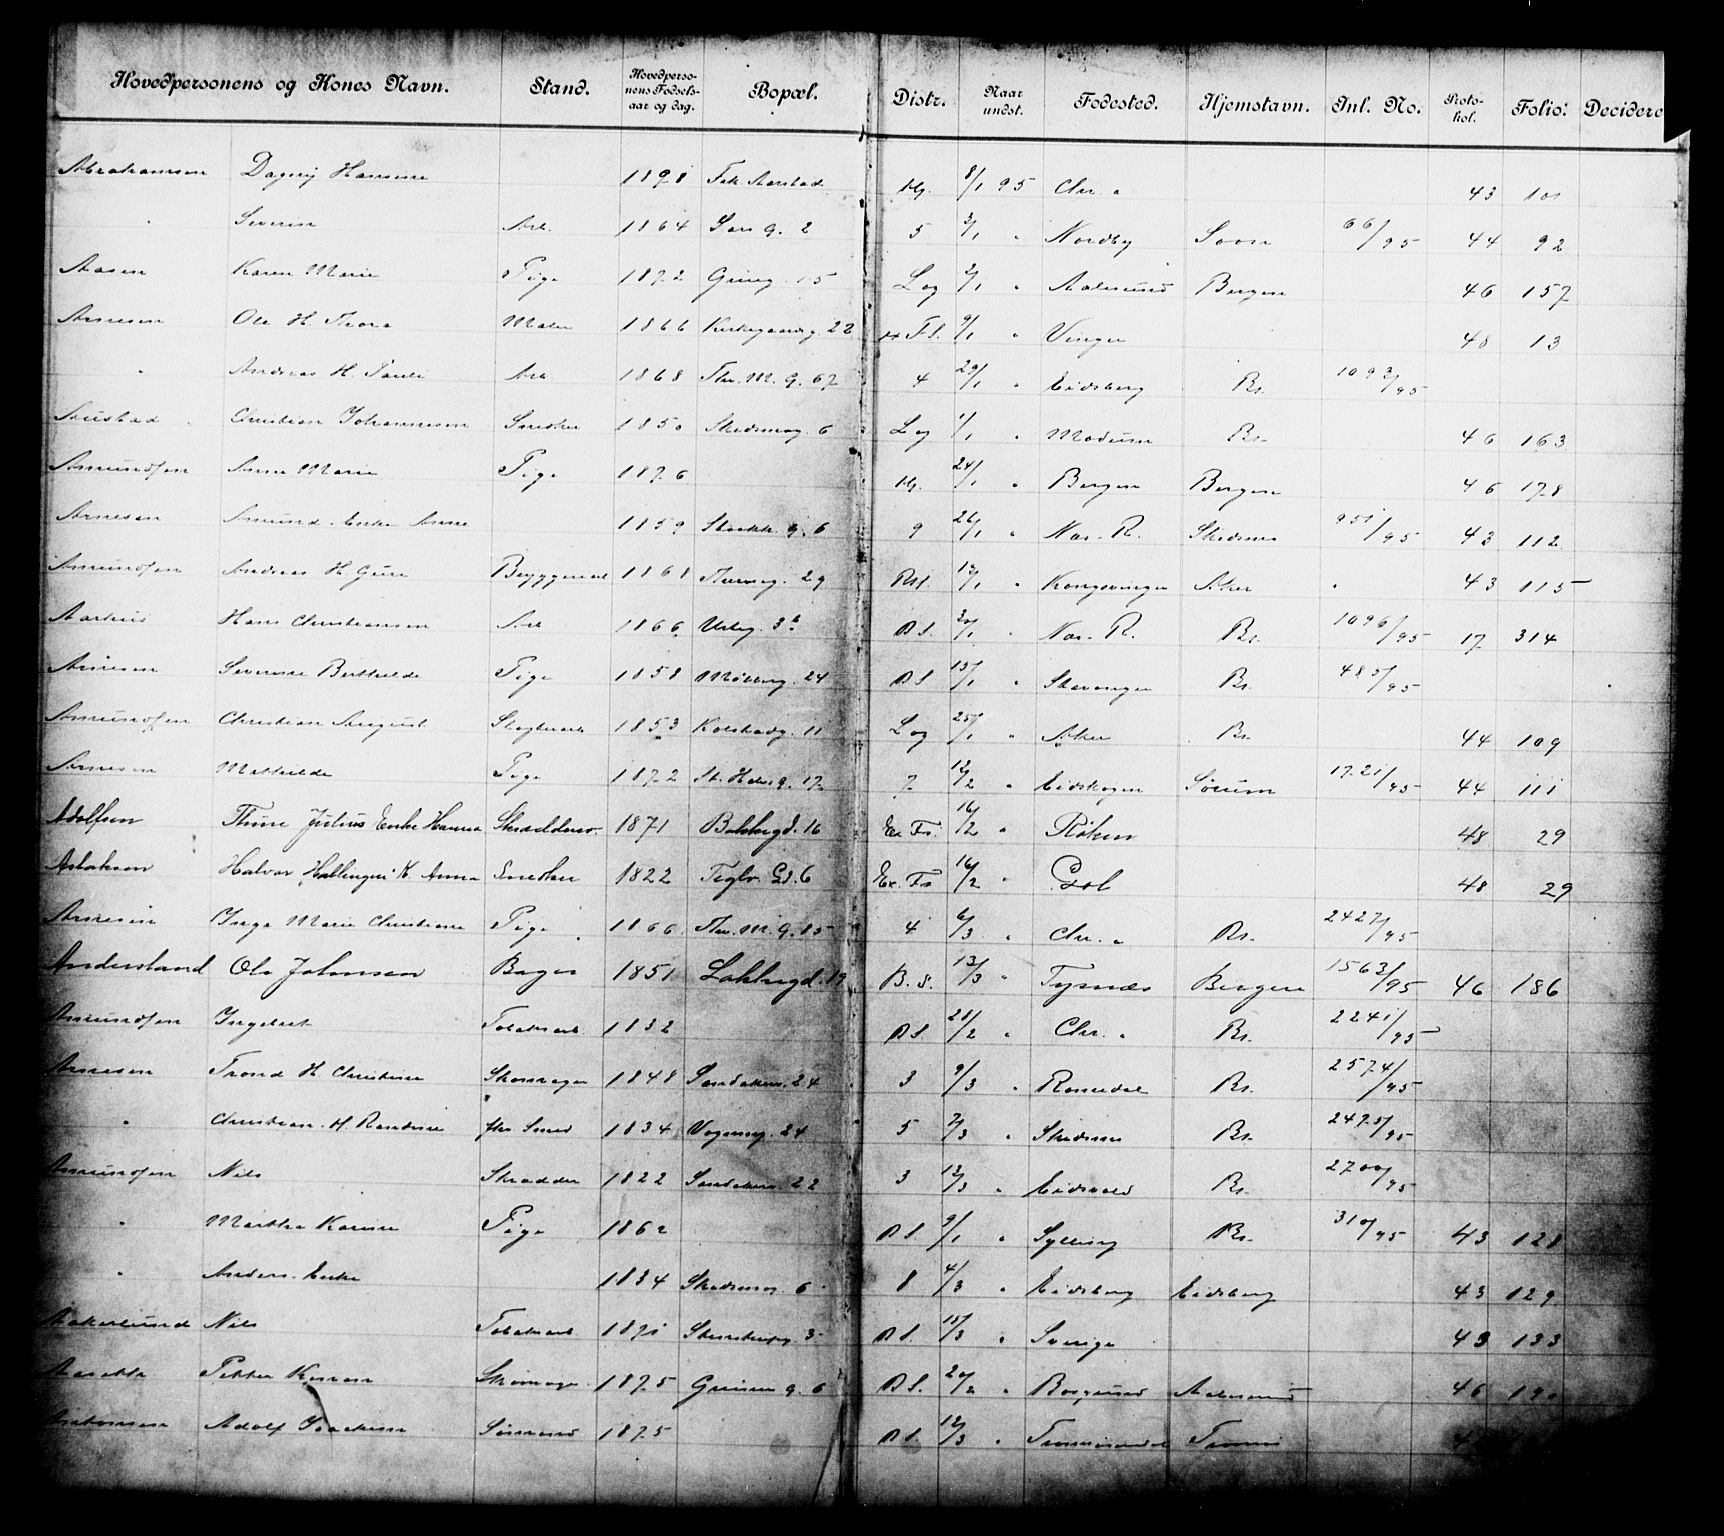 Hovedpersonens og Kones Navn. Stand. Hovedpersonens Fødselsaar og dag. Bopæl. Distr. Naar undst. Fødested. Hjemstavn. Inl. No. Protokol. Folio: Decidere
Abrahamsen Dagny Hansine 1898 Aarstad Hg. 8/1 95 Chr. " 43 101
" Severin Arb. 1864 2 5 3/1 " Nordby Soon 66/95 44 92
Aasen Karen Marie Pige 1872 15 Log 2/1 " Aalesund Bergen 46 157
Arnesen Ole H. Thora Maler 1866 Kirkegaardsg. 22 9/1 " Vinger 48 13
" Andreas H. Pauli Arb 1868 Thv. M. g. 67 4 29/1 " Eidsberg Br. 1092/95
Aurstad Christian Johannesen Snedker 1850 Skedsmog. 6 Log 1/1 " Modum Br. 46 163
Amundsen Anne Marie Pige 1876 Hg. 24/1 " Bergen Bergen 46 178
Arnesen Amund Enke Anne 1859 Stockh. g. 6 9 26/1 " Nes. R. Skedsmo 951/95 43 112
Amundsen Andreas H. Bryggeriarb 1868 29 12/1 " Kongsvinger Aker " 43 115
Aarhus Hans Christiansen Arb 1866 Urteg. 3 B S. 30/1 " Nes. R. Br. 1096/95 17 314
Arnesen Severine Berthilde Pige 1858 Møllerg. 24 B S. 15/1 " Stavanger Br. 485/95
Amundsen Christian August Slagterarb 1853 Kolstadg. 11 Log 25/1 " Aker Br. 44 109
Arnesen Mathilde Pige 1872 St. Halv. g. 17 7 12/2 " Eidskogen Sørum 1721/95 44 111
Adolfsen Thure Julius Enke Hanna Skrædders. 1871 16 Ex Fs. 16/2 " Røken 48 29
Aslaksen Halvor Hallingen K. Anna Snedker 1822 Teglv. Gd. 6 Ex. Fs 16/2 " Gol 48 29
Arnesen Inga Marie Christiane Pige 1866 Thv. M. g. 85 4 6/3 " Chr. " Br. 2427/95
Anderstand Ole Johnsen Bager 1851 Lakkegd. 19 B. S. 13/3 " Tysnæs Bergen 1563/95 46 186
Amundsen Ingebret Tobaksarb 1832 B S. 28/2 " Chr. " Br. 2241/95
Arnesen Trond H. Christine Skomager 1848 Sandakerv. 24 3 9/3 " Romedal Br. 2574/95
" Christian H. Randine fhv. Smed 1834 Vognmg. 24 5 7/3 " Skedsmo Br. 2475/95
Amundsen Nils Skrædder 1822 Sandakerv. 22 3 12/3 " Eidsvold Br. 2700/95
" Martha Karine Pige 1862 B S. 9/1 " Sylling Br. 310/95 43 128
" Anders Enke 1834 Skedsmog. 6 8 4/3 " Eidsberg Eidsberg 43 129
Aakerlund Nils Tobaksarb 1871 Stenstrupg. 3 B S. 15/3 " Sverige 43 133
Petter Skomager 1875 Grünerg. 6 B S. 20/2 " Borgund Aalesund 46 190
Antonsen Adolf Joackim Sømand 1875 B S. 12/3 " Tromsøsundet Tromsø